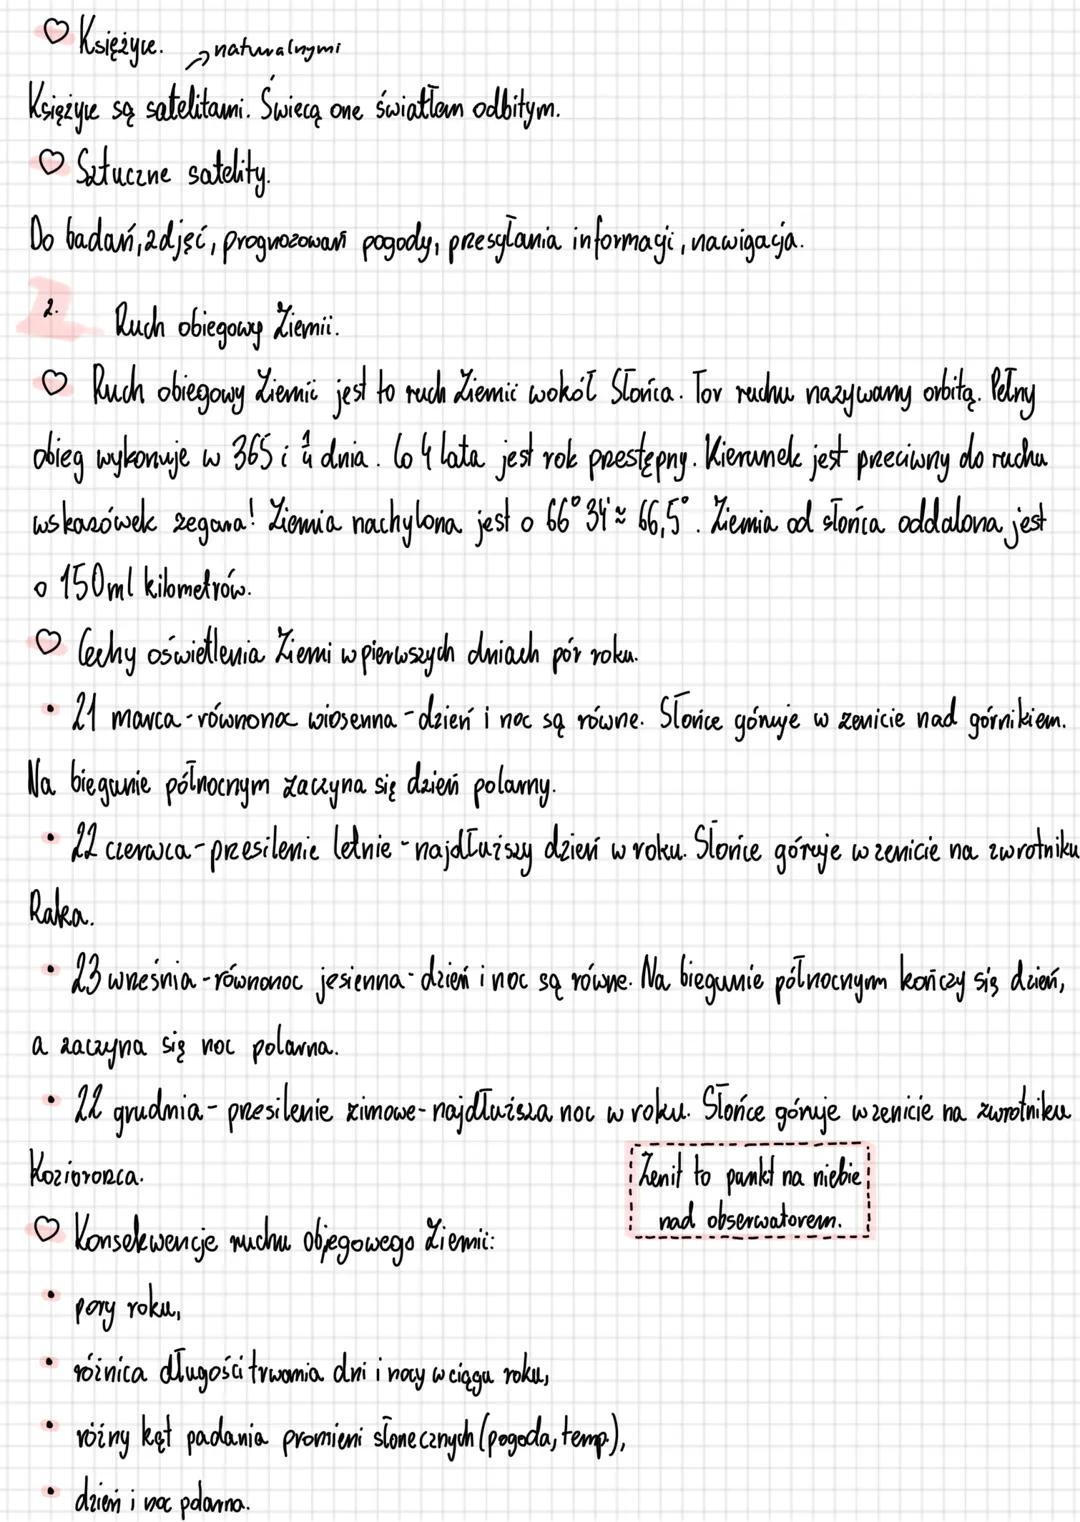 ♡ Księżyce. → naturalnymi
Księżyce są satelitami. Świecą one światłem odbitym.
♡ Sztuczne satelity.
Do badań, zdjęć, prognozowań pogody, przesyłania informacji, nawigacja.
2. Ruch obiegowy Ziemii.
♡ Ruch obiegowy Ziemii jest to ruch Ziemii wokół Słońca. Tor ruchu nazywamy orbitą. Pełny
obieg wykonuje w 365 i 1/4 dnia. Co 4 lata jest rok przestępny. Kierunek jest przeciwny do ruchu
wskazówek zegara! Ziemia nachylona jest o 66°34' ≈ 66,5°. Ziemia od słońca oddalona jest
o 150ml kilometrów.
♡ Cechy oświetlenia Ziemi w pierwszych dniach pór roku.
• 21 marca - równonoc wiosenna - dzień i noc są równe. Słońce góruje w zenicie nad górnikiem.
Na biegunie północnym zaczyna się dzień polarny.
• 22 czerwca - przesilenie letnie - najdłuższy dzień w roku. Słońce góruje w zenicie na zwrotniku
Raka.
• 23 września - równonoc jesienna - dzień i noc są równe. Na biegunie północnym kończy się dzień,
a zaczyna się noc polarna.
• 22 grudnia - przesilenie zimowe - najdłuższa noc w roku. Słońce góruje w zenicie na zwrotniku
Koziorożca.
Zenit to punkt na niebie
nad obserwatorem.
♡ Konsekwencje ruchu obiegowego Ziemii:
• pory roku,
• różnica długości trwania dni i nocy w ciągu roku,
• różny kąt padania promieni słonecznych (pogoda, temp.),
• dzień i noc polarna.